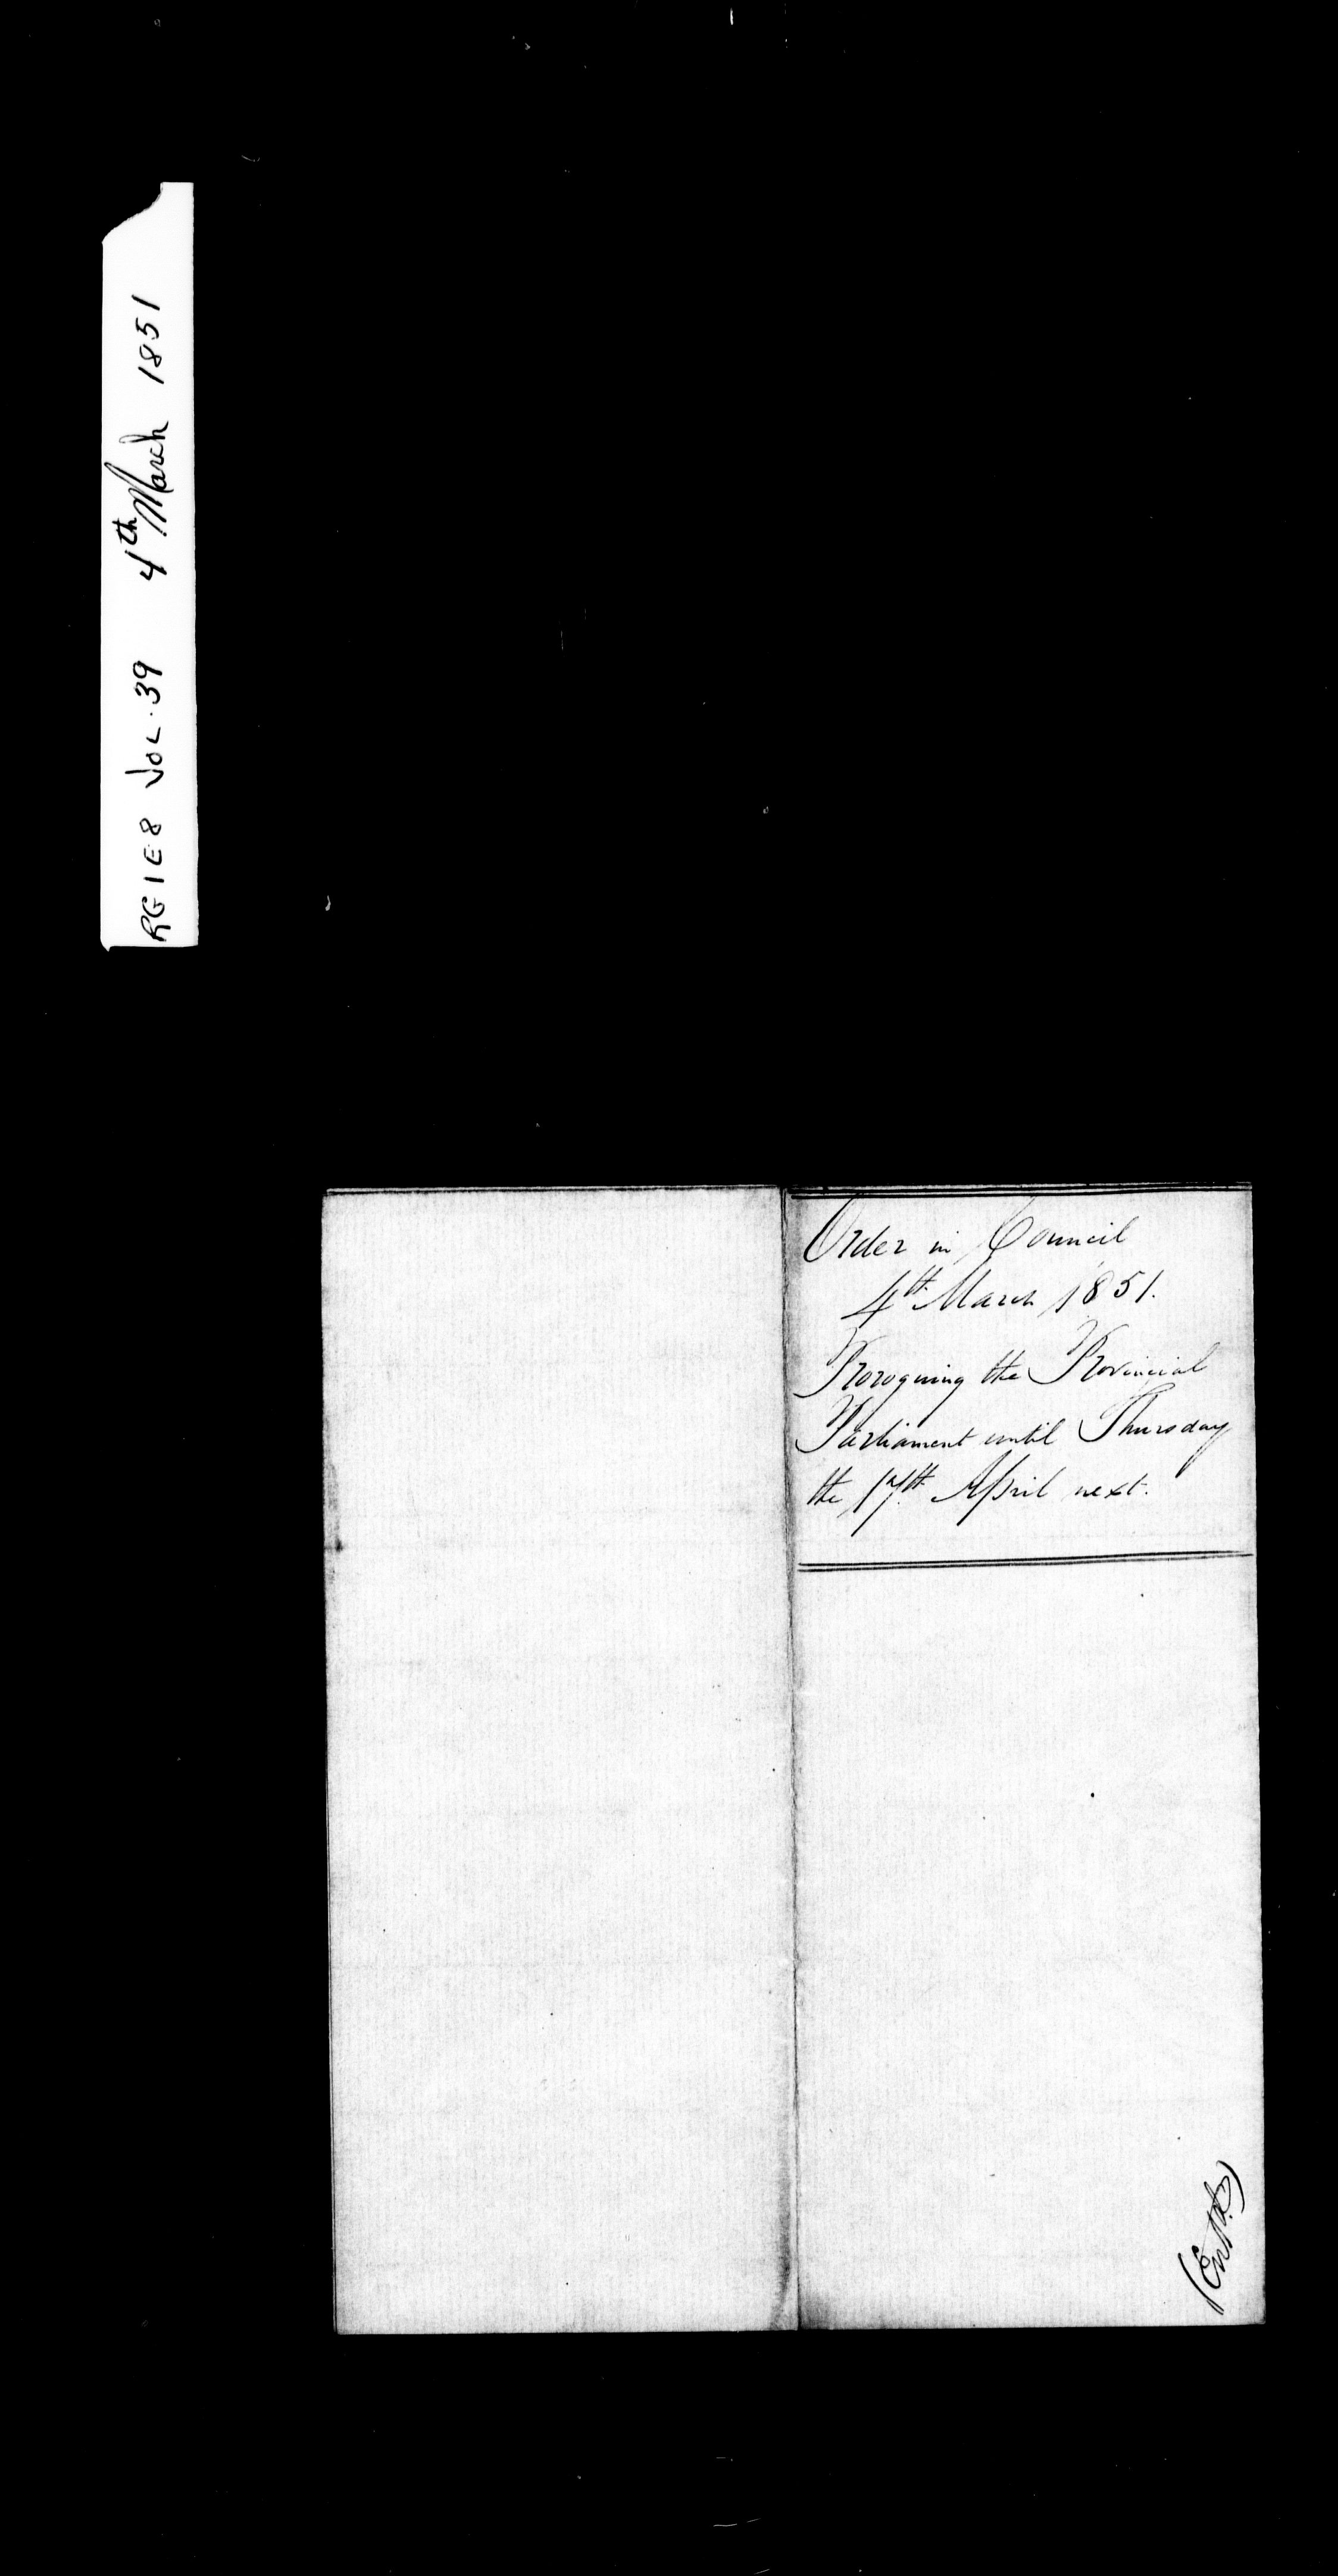 RG 1 E 8 VOL. 39 4th March 1851
Order in Council
4th March 1851.
Proroguing the Provincial
Parliament until Thursday
the 17th April next.